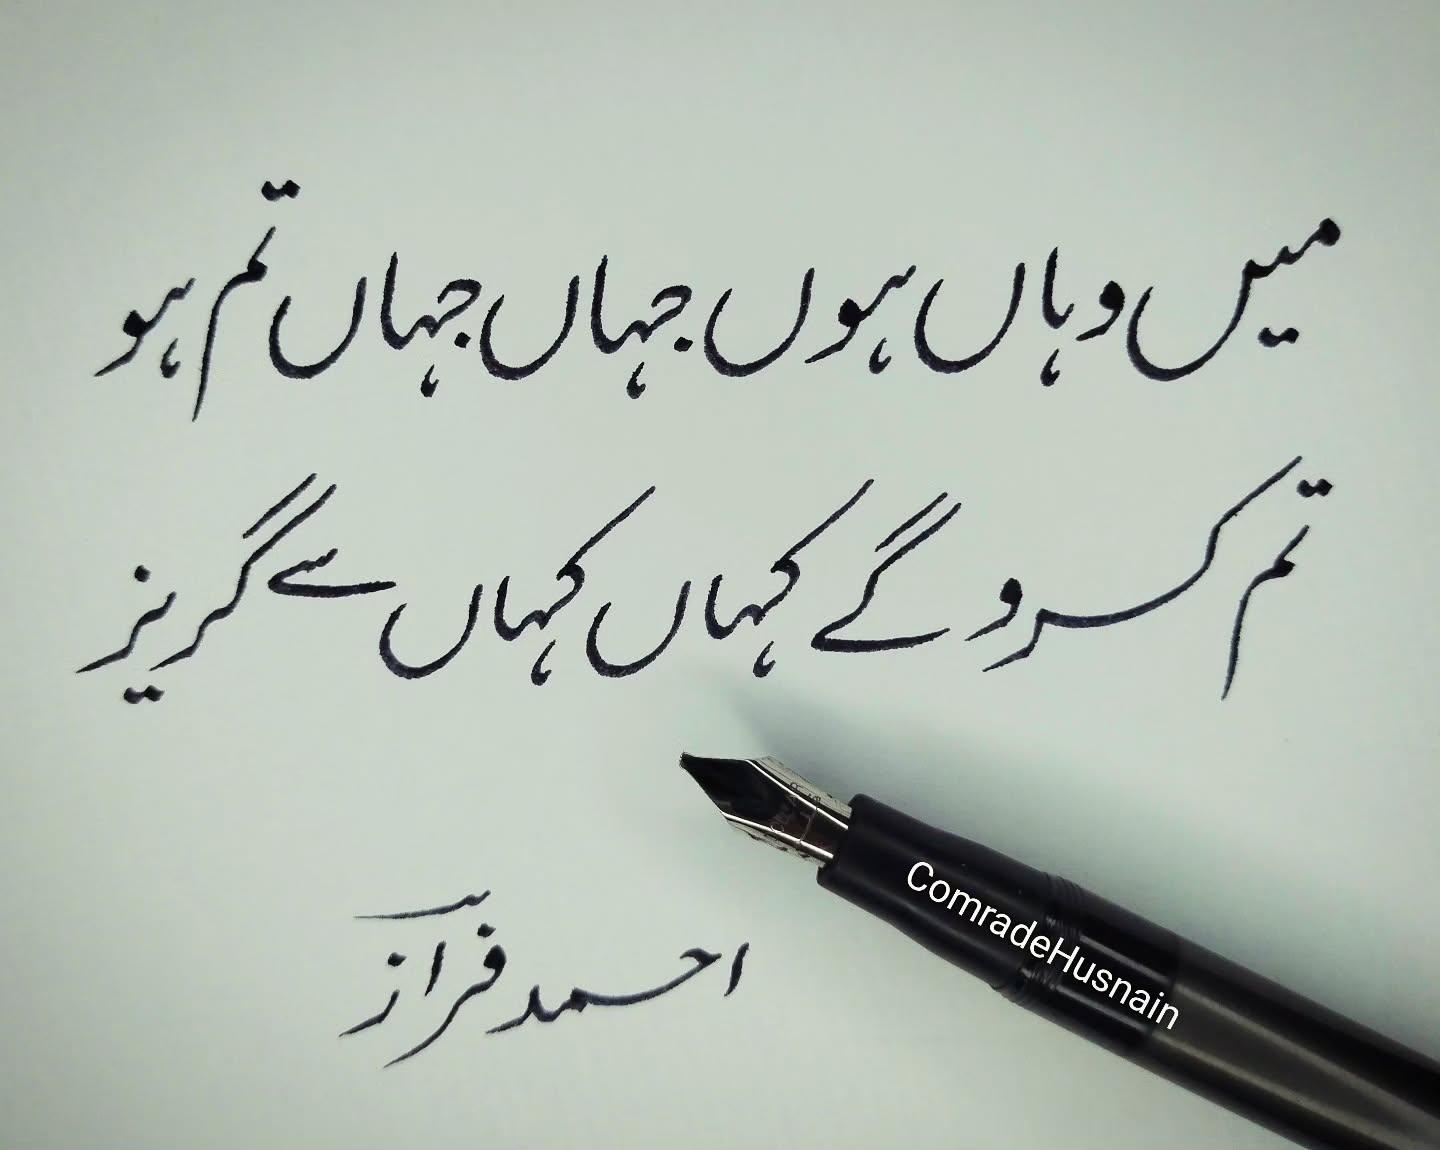 میں وہاں ہوں جہاں جہاں تم ہو
تم کرو گے کہاں کہاں سے گریز
احمد فراز
ComradeHusnain